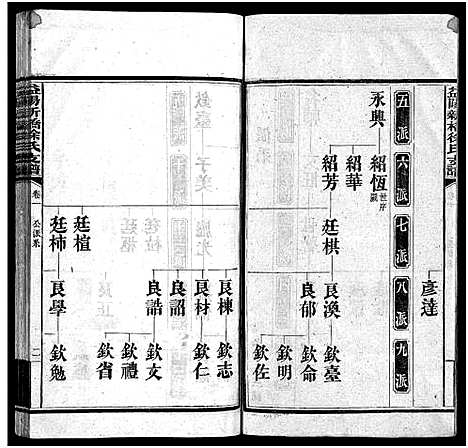 益陽新橋徐氏支譜
彥達
五派
六派
七派
八派
九派
永興
紹恆
世序
紹華
紹芳
廷棋
良渙
良郁
欽臺
欽命
欽明
欽佐
廷楦
廷柿
良棟
良材
良詔
良誥
良學
欽志
欽仁
欽文
欽禮
欽省
欽勉
益陽新橋徐氏支譜
卷
公派系
二